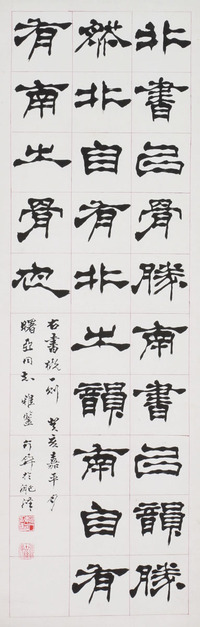 北書㠯骨勝南書㠯韻勝
然北自有北之韻南自有
有南之骨也
右書概一則 癸亥嘉平月
曙亞同志雅鑒